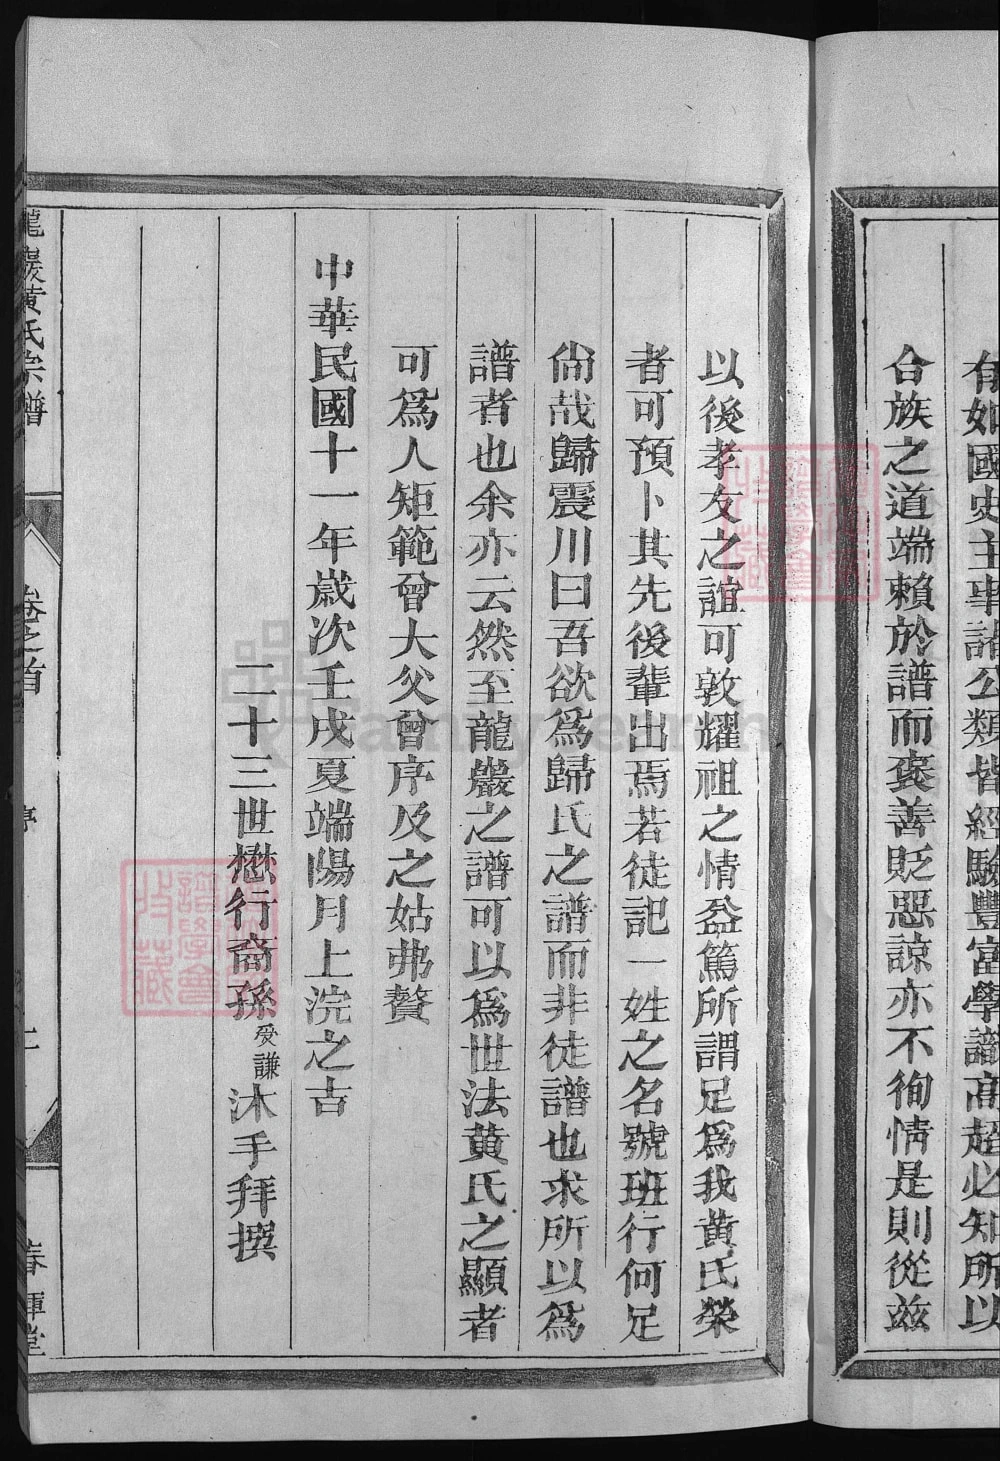 有如國史主事諸公類皆經驗豐富學識高超必知所以
合族之道端賴於譜而褒善貶惡諒亦不徇情是則從茲
以後孝友之誼可敦耀祖之情益篤所謂足為我黃氏榮
者可預卜其先後輩出焉若徒記一姓之名號班行何足
尙哉歸震川曰吾欲為歸氏之譜而非徒譜也求所以為
譜者也余亦云然至龍巖之譜可以為世法黃氏之顯者
可為人矩範曾大父曾序及之姑弗贅
中華民國十一年歲次壬戌夏端陽月上浣之吉
二十三世懋行裔孫受謙沐手拜撰
龍巖黃氏宗譜 卷之首 序 春暉堂